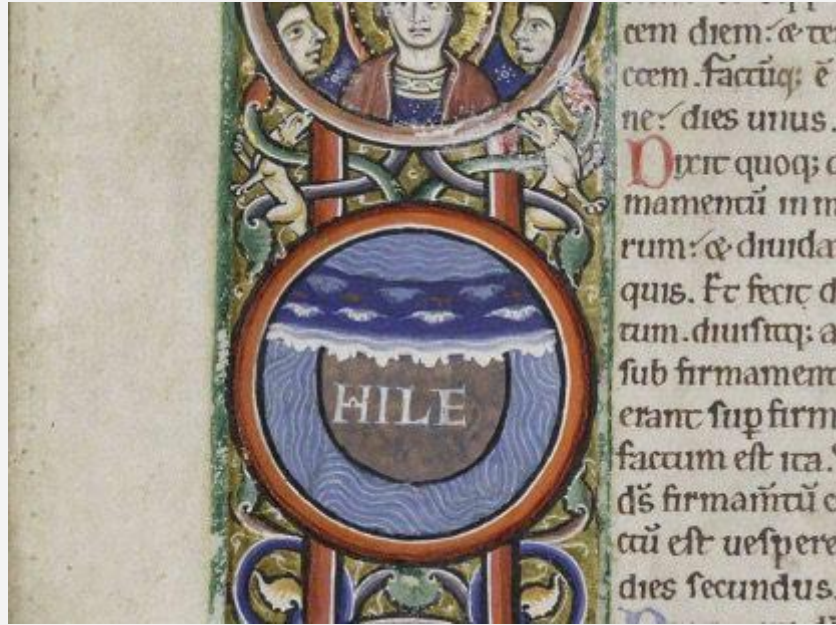 HILE
cem diem: & te
ccem. factūq; ē
ne: dies unus
Dixit quoq; d
mamentū in m
rum: & diuida
quis. Et fecit d
tum. diuisitq; a
sub firmament
erant sup firm
factum est ita.
ds̄ firmam̄tū c
ctū est uespere
dies secundus.